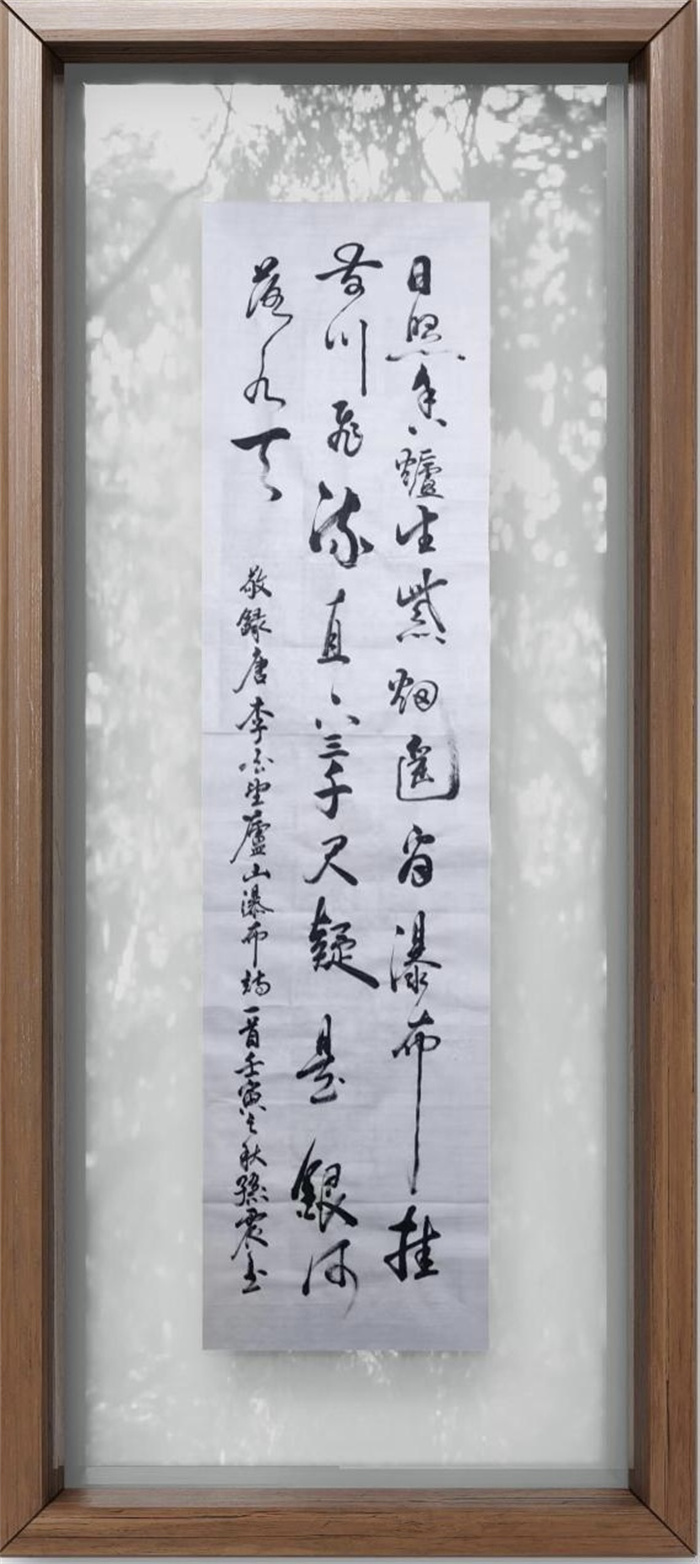 日照香爐生紫烟遥看瀑布挂
前川飛流直下三千尺疑是銀河
落九天
敬録唐李白望廬山瀑布詩一首壬寅之秋孫震